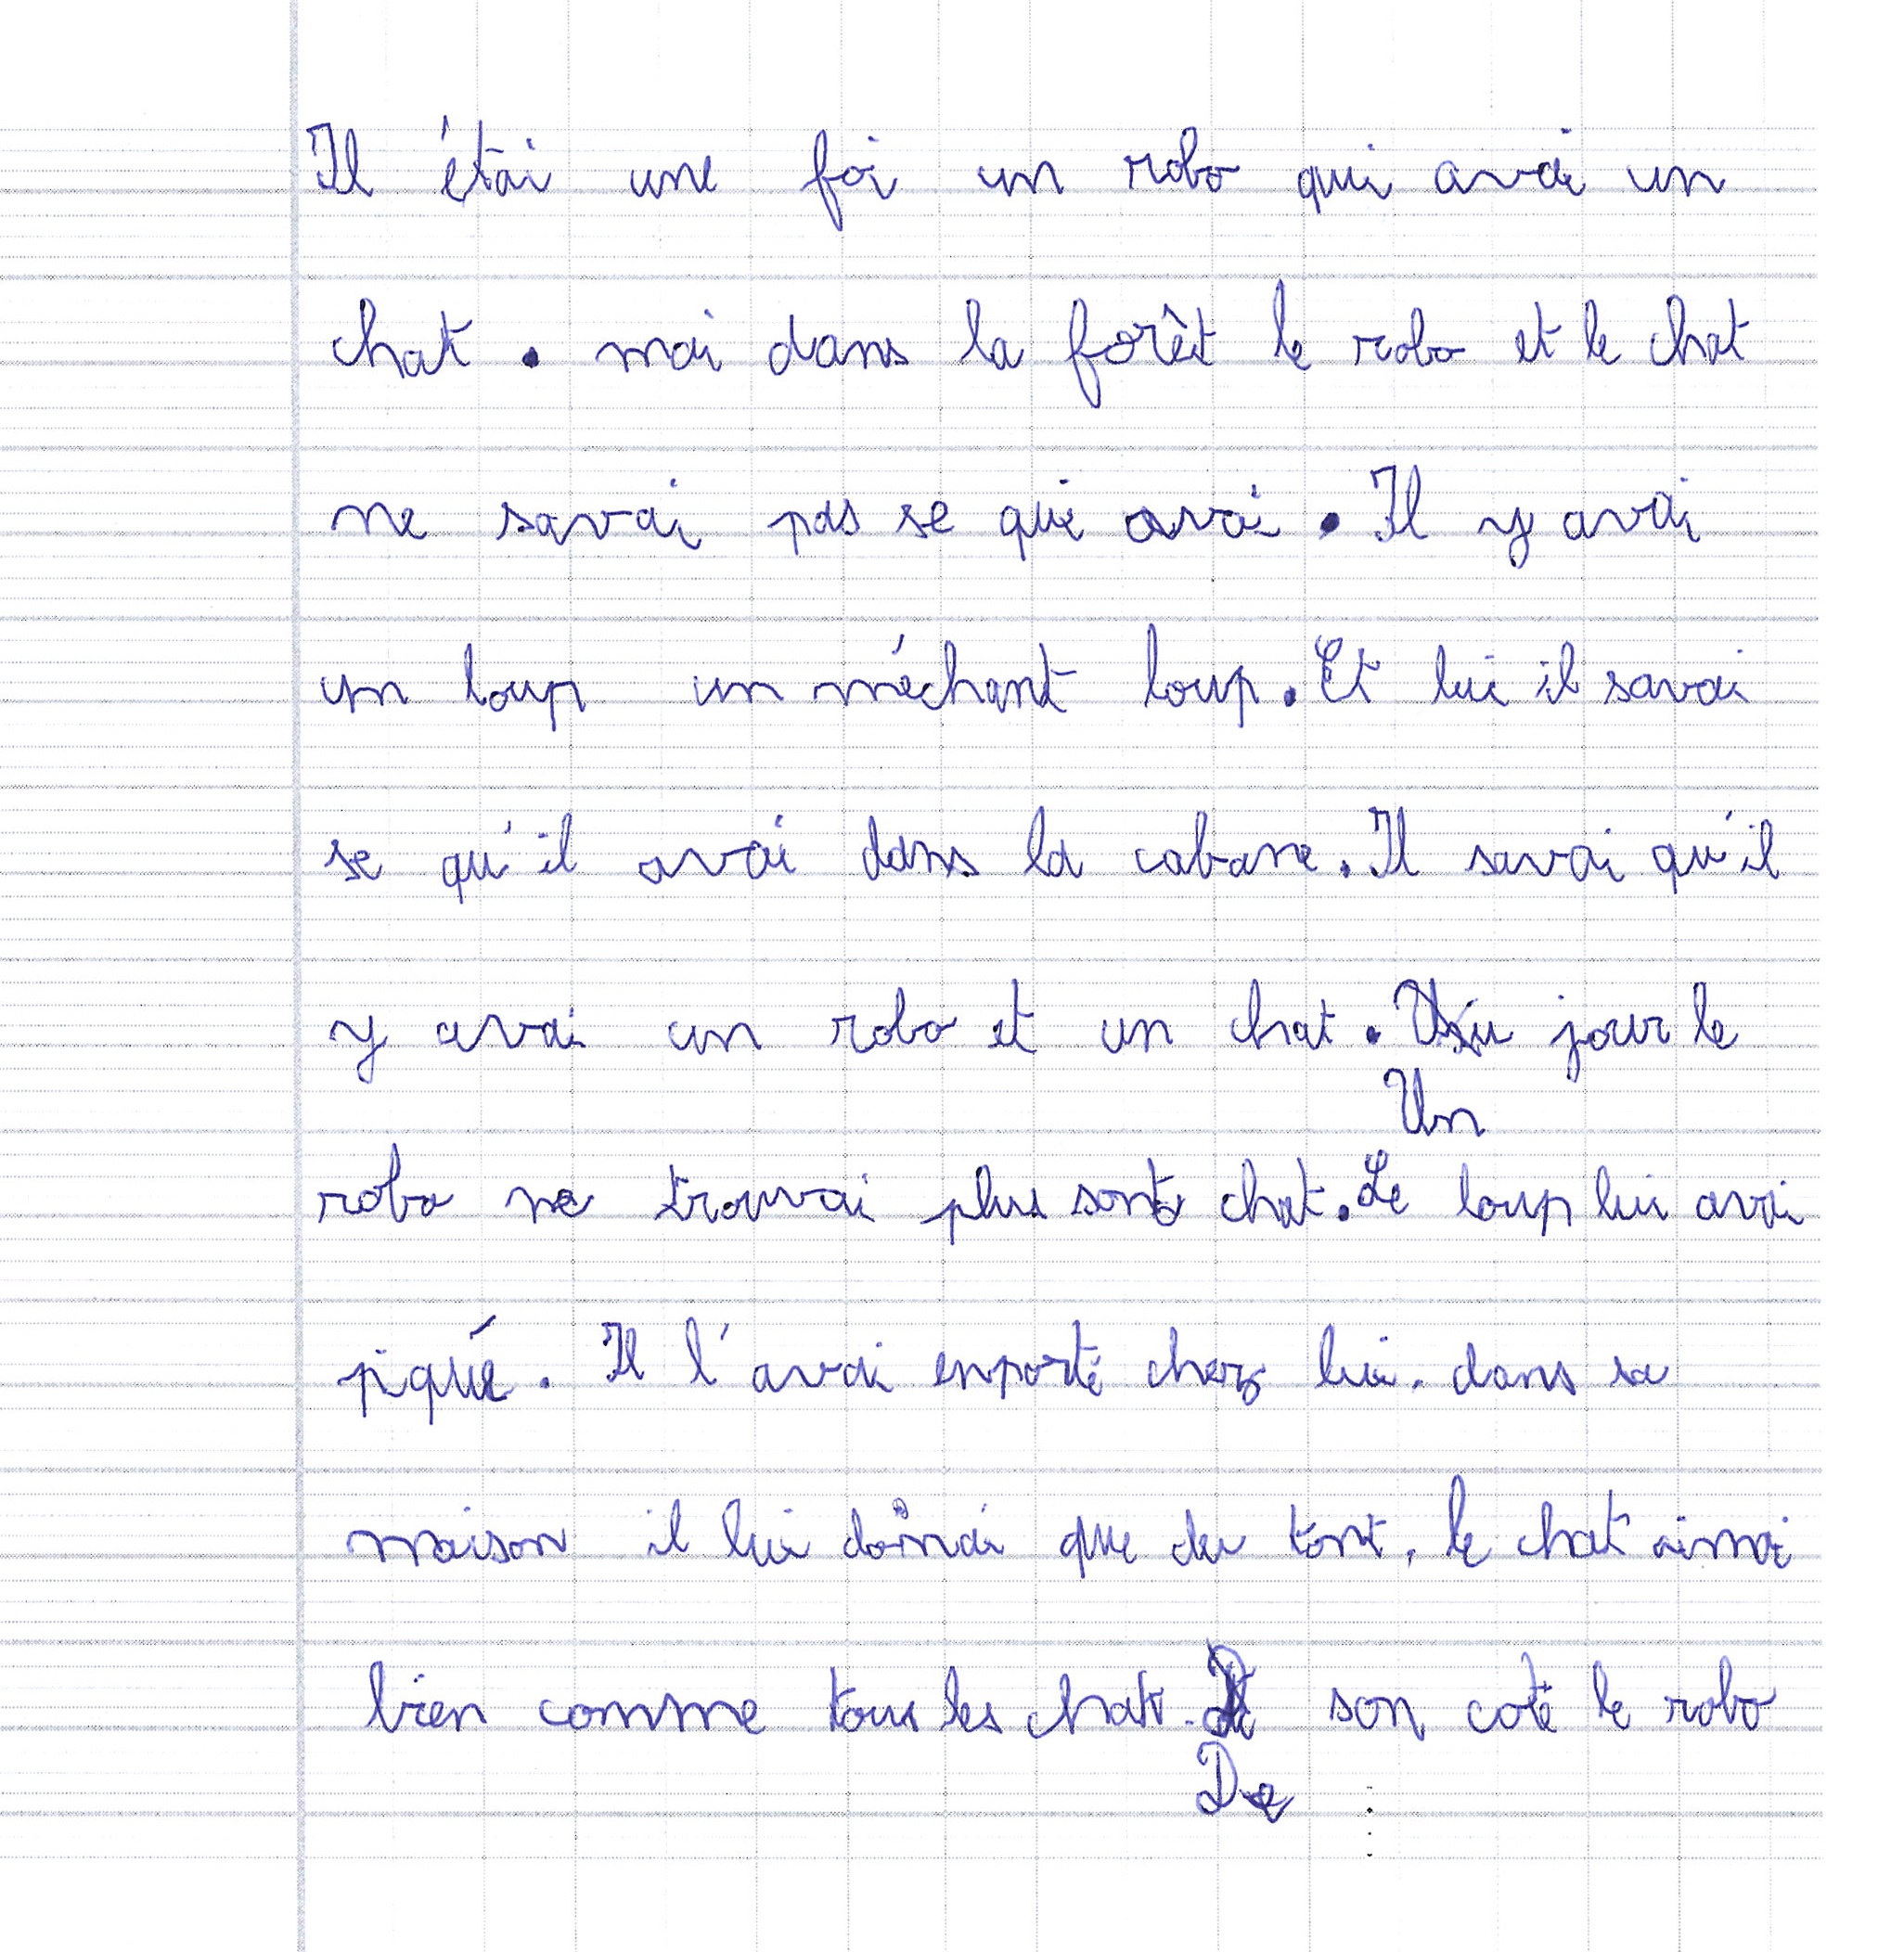 Il étai une foi un robo qui avai un
chat. mai dans la forêt le robo et le chat
ne savai pas se qui avai. Il y avai
un loup un méchant loup. Et lui il savai
se qu'il avai dans la cabane. Il savai qu'il
y avai un robo et un chat. jour le
Un
robo ne trouvai plus sont chat. Le loup lui avai
piqué. Il l'avai enporté chez lui. dans sa
maison il lui donnai que du tont. le chat aimai
bien comme tous les chats. son coté le robo
De